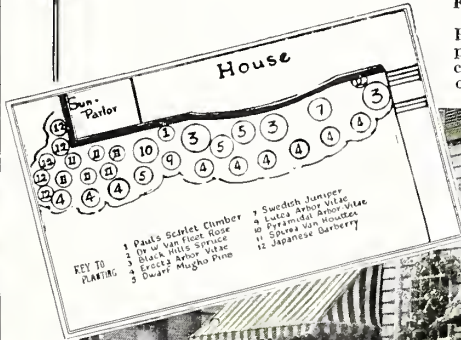 House
Sun-
Parlor
12 1 3 5 3 7 3
12 11 11 11 10 5 4 4
12 11 11 11 5 9 4 4 4 4
12 4 4 4
KEY TO
PLANTING
1 Paul's Scarlet Climber
2 Dr W Van Fleet Rose
3 Black Hills Spruce
4 Erecta Arbor Vitae
5 Dwarf Mugho Pine
7 Swedish Juniper
9 Lutea Arbor Vitae
10 Pyramidal Arbor Vitae
11 Spirea Van Houttei
12 Japanese Barberry